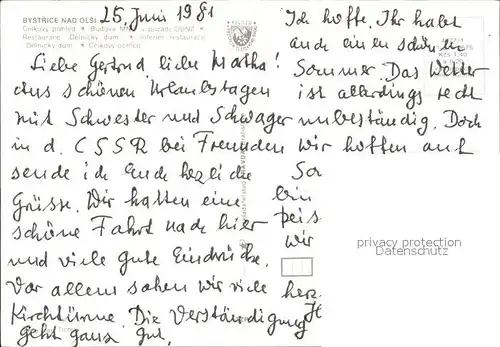 BYSTŘICE NAD OLŠÍ
Celkový pohled • Budova MNV • pozadí
Restaurace „Dělnický dům“ • interiér restaurace
„Dělnický dům“ • Celkový
25. Juni 1981
Liebe Gertrud, liebe Martha!
Aus schönen Urlaubstagen
mit Schwester und Schwager
in d. CSSR bei Freunden
sende ich Euch herzliche
Grüsse. Wir hatten eine
schöne Fahrt nach hier
und viele gute Eindrücke.
Vor allem sahen wir viele
Kirchtürme. Die Verständigung
geht ganz gut.
Ich hoffe, Ihr habt
auch einen schönen
Sommer. Das Wetter
ist allerdings recht
unbeständig. Doch
wir hoffen auf
bin
wir
herz.
privacy protection
Datenschutz